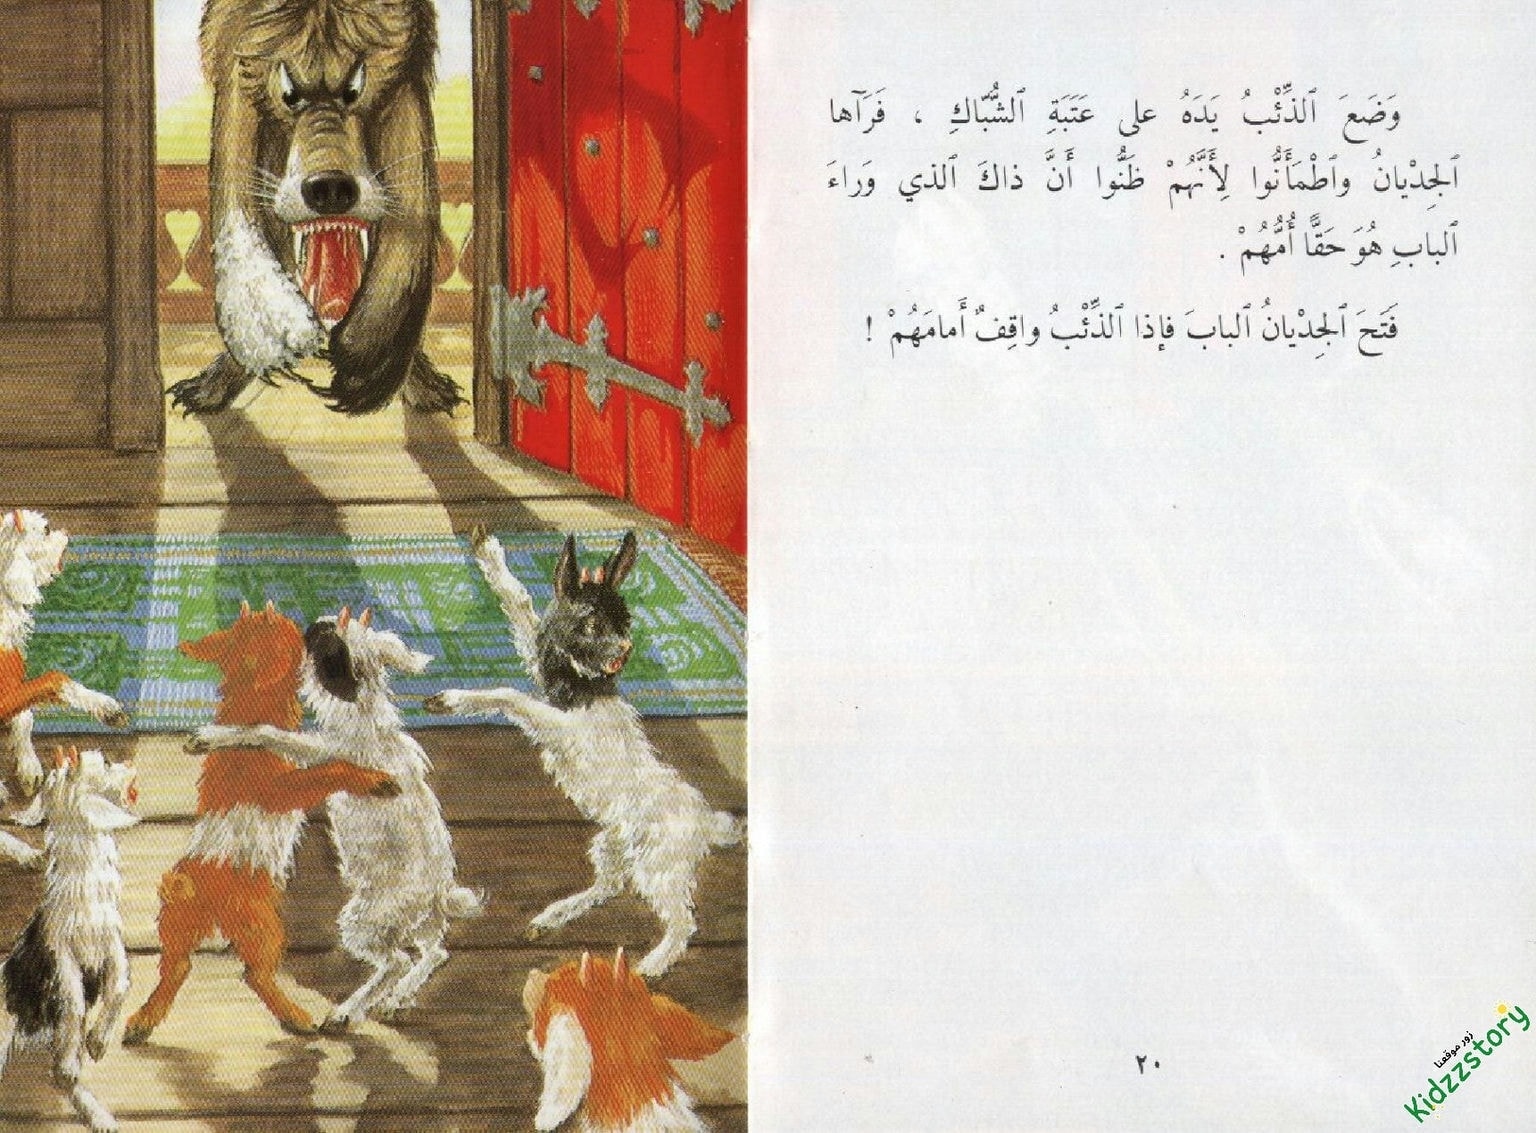 وَضَعَ ٱلذِّئْبُ يَدَهُ على عَتَبَةِ ٱلشُّبّاكِ ، فَرَآها
ٱلجِدْيانُ وٱطْمَأَنُّوا لِأَنَّهُمْ ظَنُّوا أَنَّ ذاكَ ٱلذي وَراءَ
ٱلبابِ هُوَ حَقًّا أُمُّهُمْ .
فَتَحَ ٱلجِدْيانُ ٱلبابَ فإذا ٱلذِّئْبُ واقِفٌ أَمامَهُمْ !
٢٠
زور موقعنا
Kidzzstory